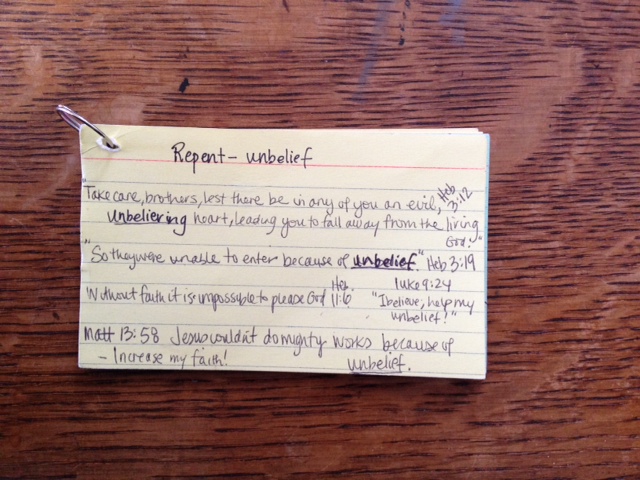 Repent - unbelief
"Take care, brothers, lest there be in any of you an evil, Heb 3:12
unbelieving heart, leading you to fall away from the living
God."
"So they were unable to enter because of unbelief." Heb 3:19
"Without faith it is impossible to please God Heb. 11:6
luke 9:24
"I believe, help my
unbelief!"
Matt 13:58 Jesus wouldn't do mighty works because of
unbelief.
- Increase my faith!